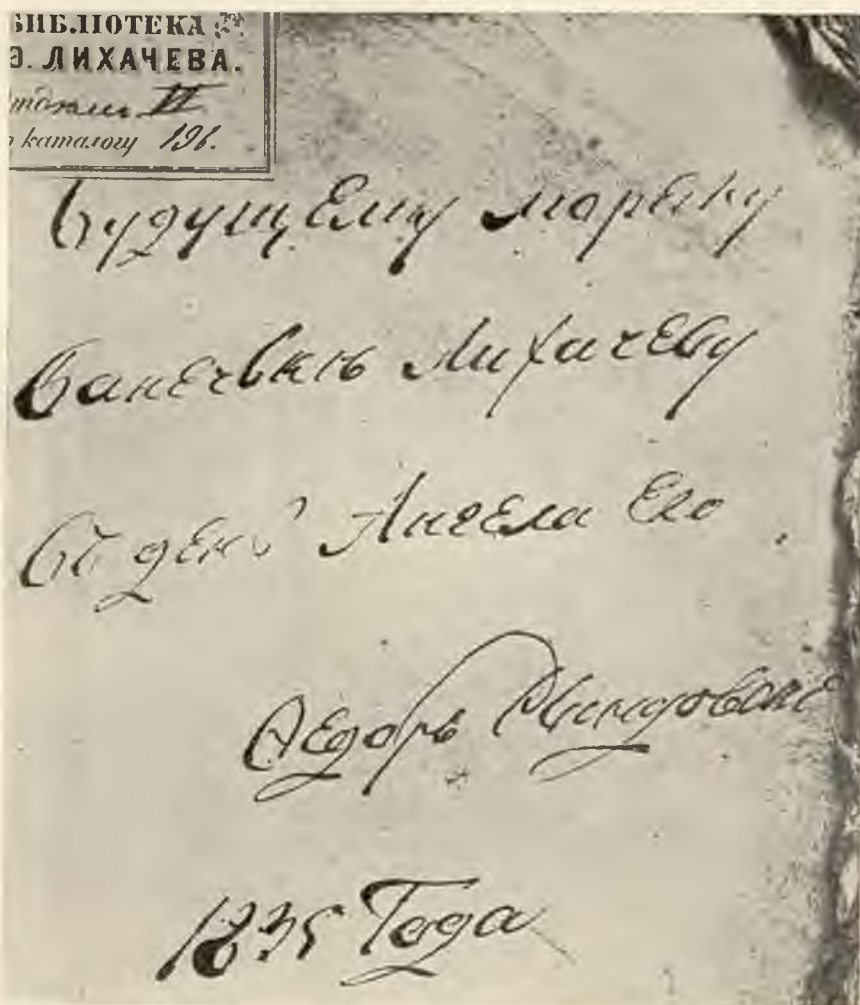 БИБЛІОТЕКА
Ѳ. ЛИХАЧЕВА.
VI
каталогу 196.
Будущему моряку
Ванечькѣ Лихачеву
Въ день Ангела Его
Ѳедоръ
1835 Года